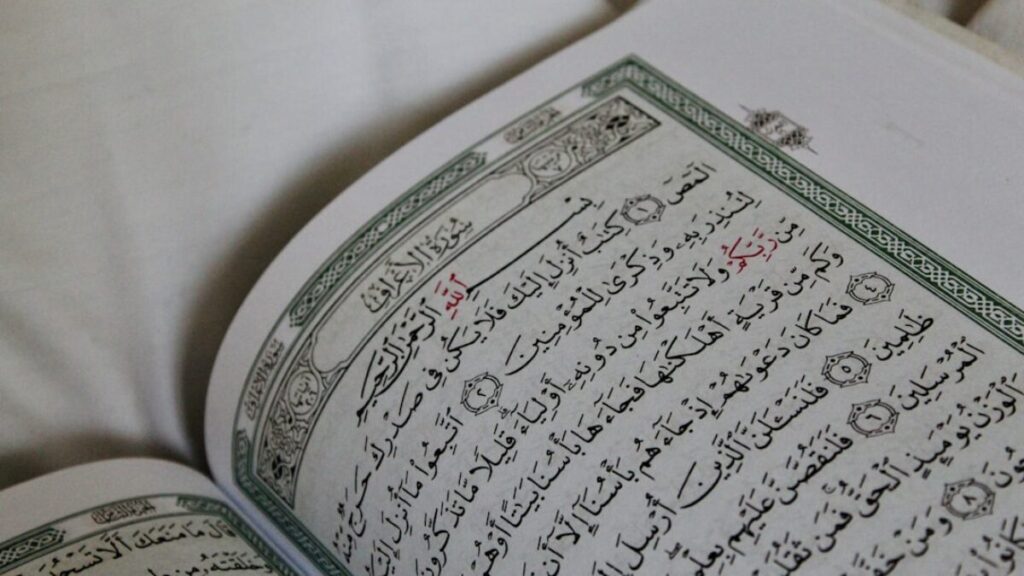 سُورَةُ الأَعْرَافِ
بِسْمِ ٱللَّهِ ٱلرَّحْمَٰنِ ٱلرَّحِيمِ
الٓمٓصٓ ١ كِتَٰبٌ أُنزِلَ إِلَيْكَ فَلَا يَكُن فِى صَدْرِكَ حَرَجٌ مِّنْهُ
لِتُنذِرَ بِهِۦ وَذِكْرَىٰ لِلْمُؤْمِنِينَ ٢ ٱتَّبِعُوا۟ مَآ أُنزِلَ إِلَيْكُم
مِّن رَّبِّكُمْ وَلَا تَتَّبِعُوا۟ مِن دُونِهِۦٓ أَوْلِيَآءَ قَلِيلًا مَّا تَذَكَّرُونَ
وَكَم مِّن قَرْيَةٍ أَهْلَكْنَٰهَا فَجَآءَهَا بَأْسُنَا بَيَٰتًا أَوْ هُمْ
٤ فَمَا كَانَ دَعْوَىٰهُمْ إِذْ جَآءَهُم بَأْسُنَآ إِلَّآ أَن
ظَٰلِمِينَ ٥ فَلَنَسْـَٔلَنَّ ٱلَّذِينَ أُرْسِلَ
ٱلْمُرْسَلِينَ ٦ فَلَنَقُصَّنَّ عَلَيْهِم بِعِلْمٍ
وَٱلْوَزْنُ يَوْمَئِذٍ ٱلْحَقُّ فَمَن ثَقُلَتْ
٨ وَمَنْ خَفَّتْ
كَانُوا۟
سُورَةُ الأَعْرَافِ
قَالَ مَا مَنَعَكَ أَلَّا تَسْجُدَ